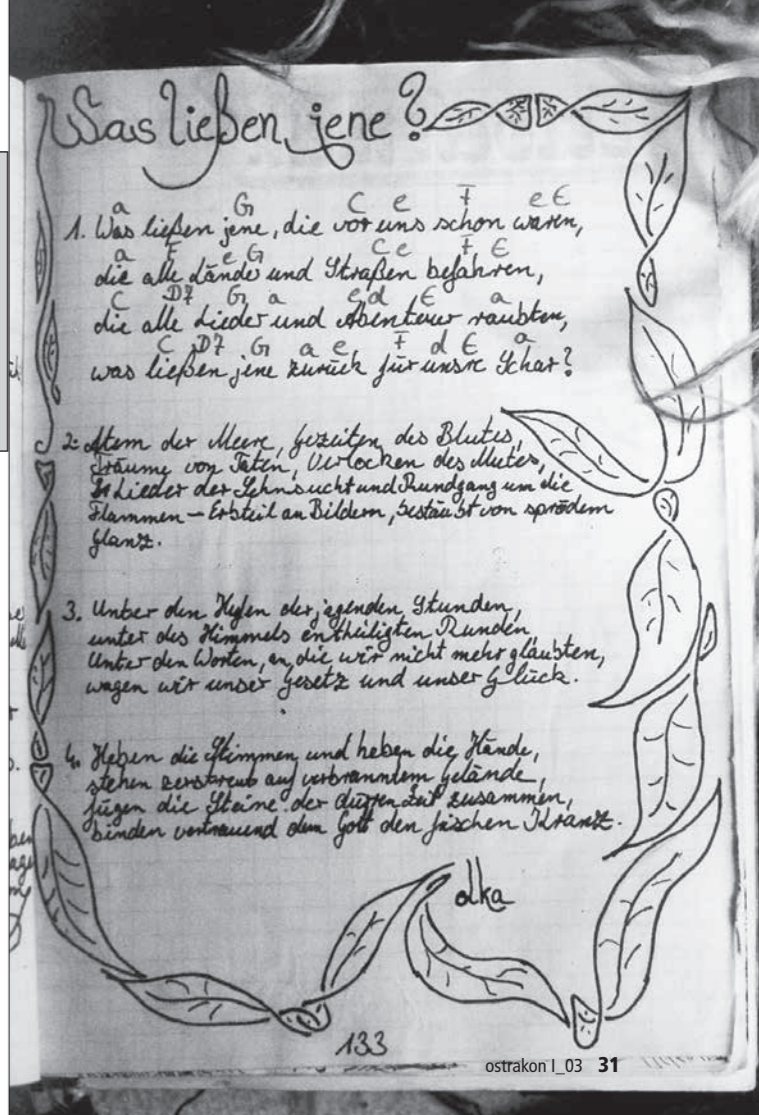 Was ließen jene?
a G C e F e E
1. Was ließen jene, die vor uns schon waren,
a F e G C e F E
die alle Lände und Straßen befahren,
C D7 G a e d E a
die alle Lieder und Abenteuer raubten,
C D7 G a e F d E a
was ließen jene zurück für unsre Schar?
2. Atem der Meere, Gezeiten des Blutes,
Träume von Taten, Verlocken des Mutes,
Lieder der Sehnsucht und Rundgang um die
Flammen – Erbteil an Bildern, bestäubt von sprödem
Glanz.
3. Unter den Hufen der jagenden Stunden,
unter des Himmels entheiligten Runden,
Unter den Worten, an die wir nicht mehr glaubten,
wagen wir unser Gesetz und unser Glück.
4. Heben die Stimmen und heben die Hände,
stehen zerstreut auf verbranntem Gelände,
fügen die Steine der dürren Zeit zusammen,
binden vertrauend dem Gott den frischen Kranz.
olka
133
ostrakon I_03 31